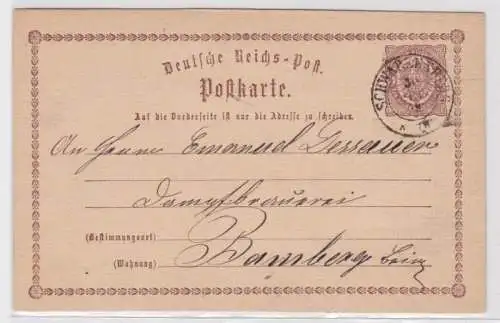 Deutsche Reichs-Post.
Postkarte.
Auf die Vorderseite ist nur die Adresse zu schreiben.
An Herrn Emanuel Dessauer
Dampfbrauerei
(Bestimmungsort)
Bamberg
(Wohnung)